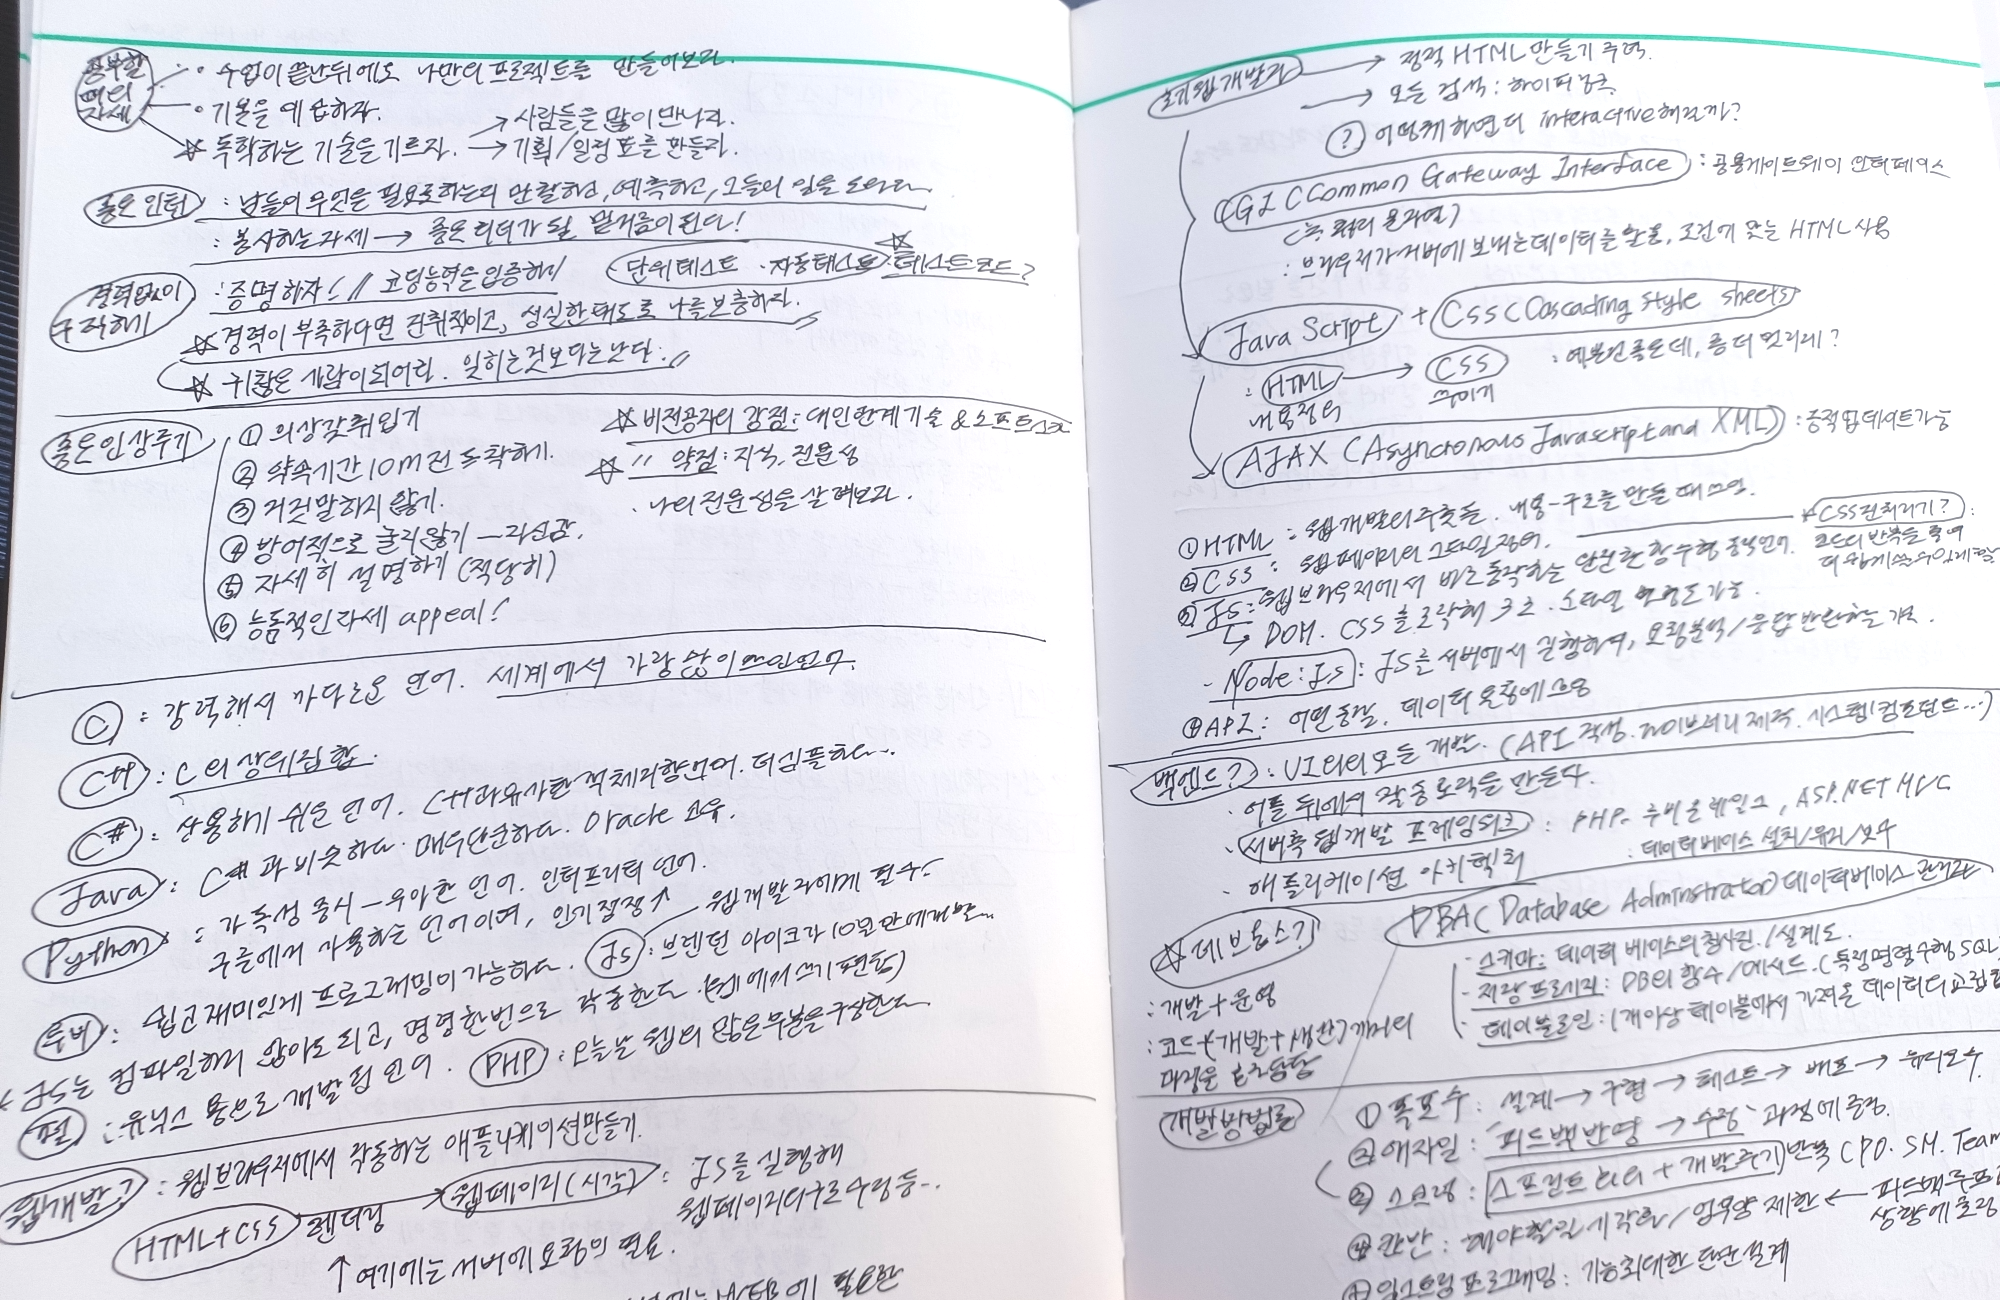 공부할 때의 자세
· 수업이 끝난 뒤에도 나만의 프로젝트를 만들어보라.
· 기본을 예습하자. → 사람들을 많이 만나자.
☆ 독학하는 기술을 기르자. → 기획/일정표를 만들자.
좋은 인턴 : 남들이 무엇을 필요로 하는지 관찰하고, 예측하고, 그들의 일을 도와라.
: 봉사하는 자세 → 좋은 리더가 될 밑거름이 된다!
단위테스트 · 자동테스트 ☆ 테스트코드?
경력없이 구직하기 : 증명하자! // 코딩능력을 입증하기
☆ 경력이 부족하다면 진취적이고, 성실한 태도로 나를 보충하자.
☆ 귀찮은 사람이 되어라. 잊히는 것보다는 낫다. //
좋은 인상 주기
① 의상 갖춰입기
② 약속시간 10m전 도착하기.
③ 거짓말하지 않기.
④ 방어적으로 굴지 않기 — 자신감.
⑤ 자세히 설명하기 (적당히)
⑥ 능동적인 자세 appeal!
☆ 비전공자의 강점 : 대인관계기술 & 소프트
☆ 〃 약점 : 지식, 전문성
· 나의 전문성을 살려보라.
C : 강력해서 까다로운 언어. 세계에서 가장 많이 쓰인 언어.
C++ : C의 상위집합.
C# : 사용하기 쉬운 언어. C++과 유사한 객체지향언어. 더 심플하다...
Java : C#과 비슷하다. 매우 단순하다. Oracle 소유.
Python : 가독성 중시 — 우아한 언어. 인터프리터 언어.
구글에서 사용하는 언어이며, 인기 점점↑
JS : 웹개발자에게 필수!
브렌던 아이크가 10일만에 개발...
루비 : 쉽고 재미있게 프로그래밍이 가능하다.
JS는 컴파일하지 않아도 되고, 명령 한번으로 작동한다. (웹에서 쓰기 편함)
펄 : 유닉스 용으로 개발된 언어. PHP : 오늘날 웹의 많은 부분을 구상한다
웹개발? : 웹브라우저에서 작동하는 애플리케이션 만들기.
HTML+CSS 렌더링 → 웹페이지(시각) : JS를 실행해
웹페이지의 구조 수정 등...
↑ 여기에는 서버에 요청이 필요.
에 필요한
초기 웹개발자 → 정적 HTML 만들기 주력.
→ 모든 검색 : 하이퍼링크
? 어떻게 하면 더 interactive해질까?
CGI (Common Gateway Interface) : 공용게이트웨이 인터페이스
: 브라우저가 서버에 보내는 데이터를 활용, 조건에 맞는 HTML 사용
Java Script + CSS (Cascading style sheets)
: HTML → CSS : 예쁘면 좋은데, 좀 더 멀리?
내용정의 꾸미기
AJAX (Asyncronous Javascript and XML) : 동적 업데이트 가능
① HTML : 웹 개발의 주춧돌. 내용-구조를 만들 때 쓰임.
② CSS : 웹 페이지의 스타일 정의.
☆ CSS 전처리기? :
코드의 반복을 줄여
더 쉽게 쓸 수 있게 함
③ JS : 웹브라우저에서 바로 동작하는 완전한 함수형 동적언어.
↳ DOM. CSS를 조작해 구조. 스타일 변경도 가능.
- Node.JS : JS를 서버에서 실행하여, 요청분석/응답 반환하는 것.
④ API : 어떤 동작, 데이터 요청에 쓰임
백엔드? : UI외의 모든 개발. (API 작성. 라이브러리 제작. 시스템 컴포넌트...)
· 어플 뒤에서 작동 로직을 만든다.
· 서버측 웹 개발 프레임워크 : PHP - 루비 온 레일스, ASP.NET MVC
· 애플리케이션 아키텍처
: 데이터베이스 설치/유지/보수
DBA (Database Adminstrator) 데이터베이스 관리자
☆ 데브옵스?
: 개발 + 운영
: 코드 (개발 + 생산)까지의
과정을 담당
· 스키마 : 데이터 베이스의 청사진. / 설계도.
- 저장 프로시저 : DB의 함수/메서드. (특정명령수행 SQL
· 테이블조인 : 1개이상 테이블에서 가져온 데이터의 교집합
개발방법론
① 폭포수 : 설계 → 구현 → 테스트 → 배포 → 유지보수.
② 애자일 : '피드백 반영 → 수정' 과정에 중점.
③ 스크럼 : 스프린트 회의 + 개발주기 반복 (PO. SM. Team
④ 칸반 : 해야할 일 시각화/업무량 제한 ← 피드백 루프
상황에
⑤ 익스트림 프로그래밍 : 기능 최대한 단순 설계